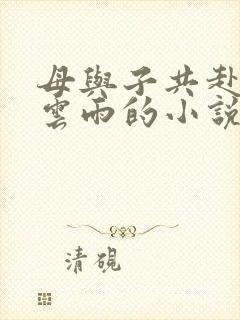 母與子共赴
雲雨的小說
清硯